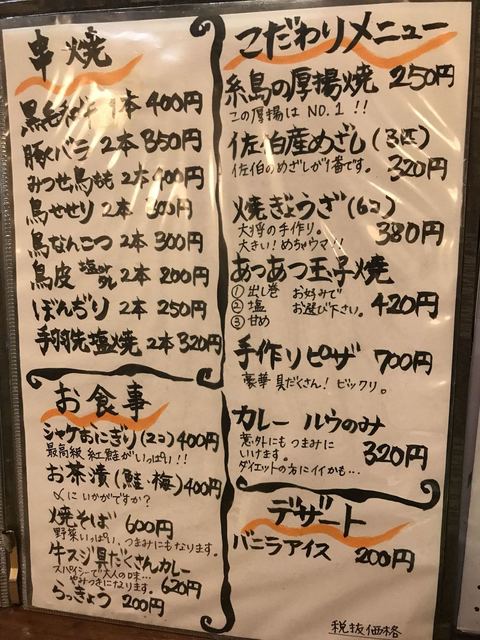 串焼
黒毛和牛 1本 400円
豚バラ 2本 350円
みつせ鳥もも 2本 400円
鳥せせり 2本 300円
鳥なんこつ 2本 300円
鳥皮 塩orタレ 2本 200円
ぼんぢり 2本 250円
手羽先塩焼 2本 320円
お食事
シャケおにぎり(2コ) 400円
最高級 紅鮭がいっぱい!!
お茶漬(鮭・梅) 400円
〆にいかがですか?
焼そば 600円
野菜いっぱい、つまみにもなります。
牛スジ具だくさんカレー
スパイシーで大人の味…
やみつきになります。 620円
らっきょう 200円
こだわりメニュー
糸島の厚揚焼 250円
この厚揚は NO.1!!
佐伯産めざし(3匹)
佐伯のめざしが1番です。 320円
焼ぎょうざ(6コ)
大将の手作り。 380円
大きい!めちゃウマ!!
あつあつ玉子焼
① 出し巻 お好みで
② 塩 お選び下さい。 420円
③ 甘め
手作りピザ 700円
豪華具だくさん!ビックリ。
カレー ルウのみ
意外にもつまみに
いけます。 320円
ダイエットの方にイイかも…
デザート
バニラアイス 200円
税抜価格